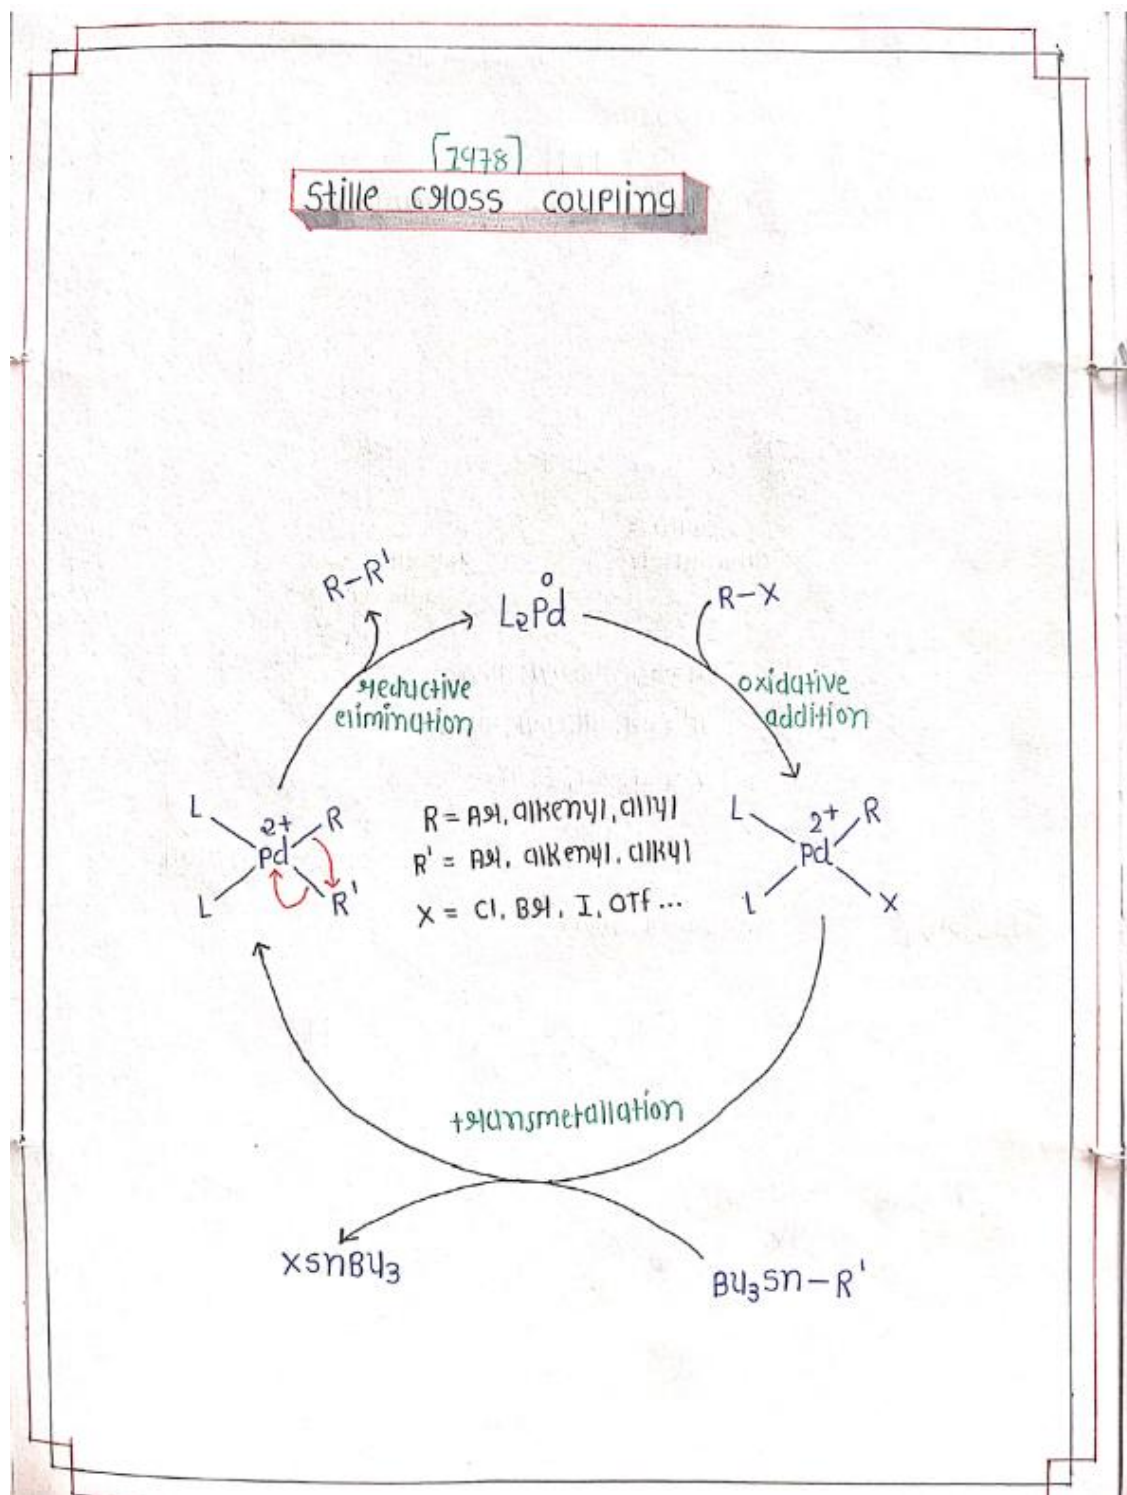 [1978]
Stille cross coupling
R-R'
L₂Pd⁰
R-X
reductive
elimination
oxidative
addition
L
2+
Pd
R
L
R'
R = Ar, alkenyl, allyl
R' = Ar, alkenyl, alkyl
X = Cl, Br, I, OTf...
L
2+
Pd
R
L
X
transmetallation
XSnBu₃
Bu₃Sn-R'